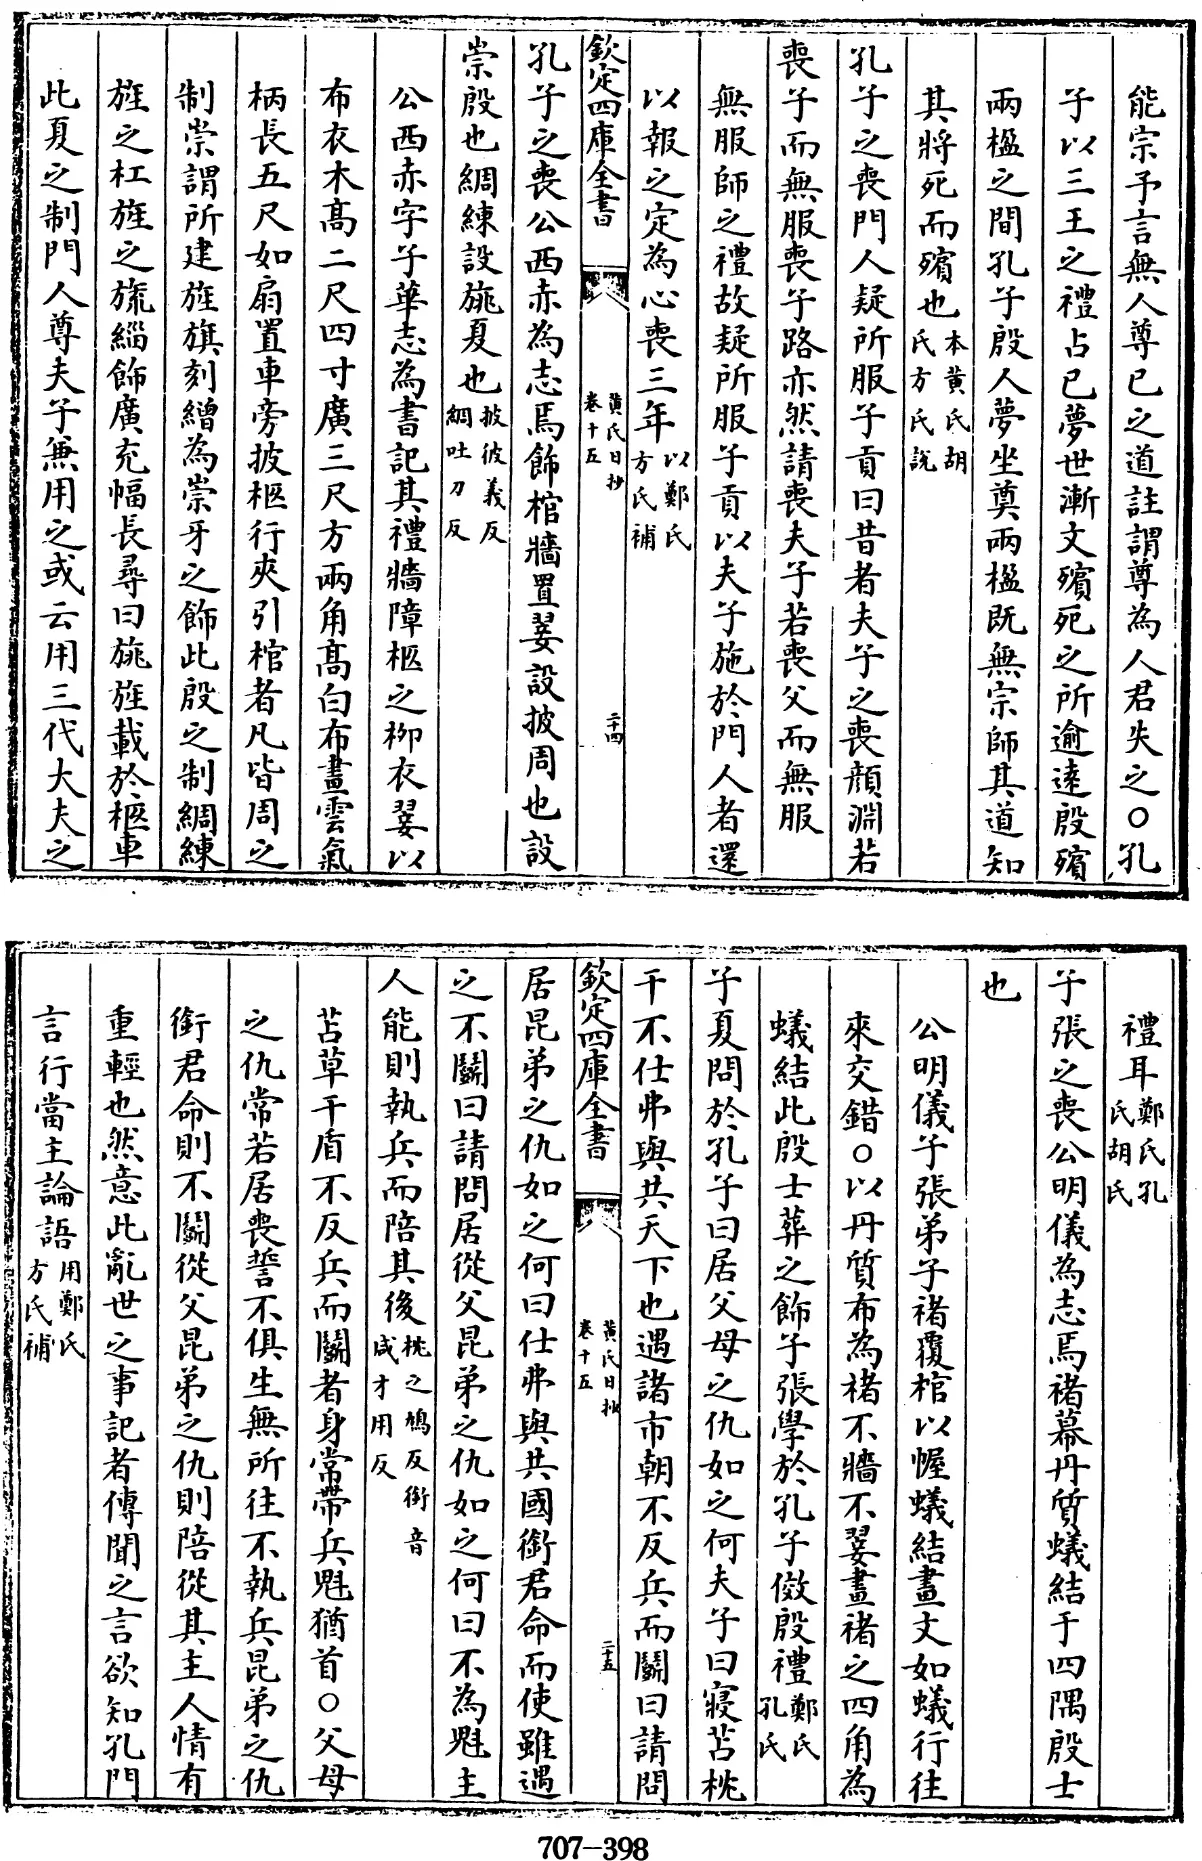 能宗予言無人尊已之道註謂尊為人君失之○孔
子以三王之禮占已夢世漸文殯死之所逾逺殷殯
兩楹之間孔子殷人夢坐奠兩楹既無宗師其道知
其將死而殯也本黄氏胡氏方氏説
孔子之喪門人疑所服子貢曰昔者夫子之喪顔淵若
喪子而無服喪子路亦然請喪夫子若喪父而無服
無服師之禮故疑所服子貢以夫子施於門人者還
以報之定為心喪三年以鄭氏方氏補
欽定四庫全書
黄氏日抄
卷十五
二十四
孔子之喪公西赤為志焉飾棺牆置翣設披周也設
崇殷也綢練設旐夏也披彼義反綢吐刀反
公西赤字子華志為書記其禮牆障柩之栁衣翣以
布衣木髙二尺四寸廣三尺方兩角髙白布畫雲氣
柄長五尺如扇置車旁披柩行夾引棺者凡皆周之
制崇謂所建旌旗刻繒為崇牙之飾此殷之制綢練
旌之杠旌之旒緇飾廣充幅長尋曰旐旌載於柩車
此夏之制門人尊夫子兼用之或云用三代大夫之
禮耳鄭氏孔氏胡氏
子張之喪公明儀為志焉褚幕丹質蟻結于四隅殷士
也
公明儀子張弟子褚覆棺以幄蟻結畫文如蟻行往
來交錯○以丹質布為褚不牆不翣畫褚之四角為
蟻結此殷士葬之飾子張學於孔子倣殷禮鄭氏孔氏
子夏問於孔子曰居父母之仇如之何夫子曰寢苫枕
干不仕弗與共天下也遇諸市朝不反兵而鬭曰請問
欽定四庫全書
黄氏日抄
卷十五
二十五
居昆弟之仇如之何曰仕弗與共國銜君命而使雖遇
之不鬭曰請問居從父昆弟之仇如之何曰不為魁主
人能則執兵而陪其後枕之鴆反銜音咸才用反
苫草干盾不反兵而鬭者身常帶兵魁猶首○父母
之仇常若居喪誓不俱生無所往不執兵昆弟之仇
銜君命則不鬭從父昆弟之仇則陪從其主人情有
重輕也然意此亂世之事記者傳聞之言欲知孔門
言行當主論語用鄭氏方氏補
707-398